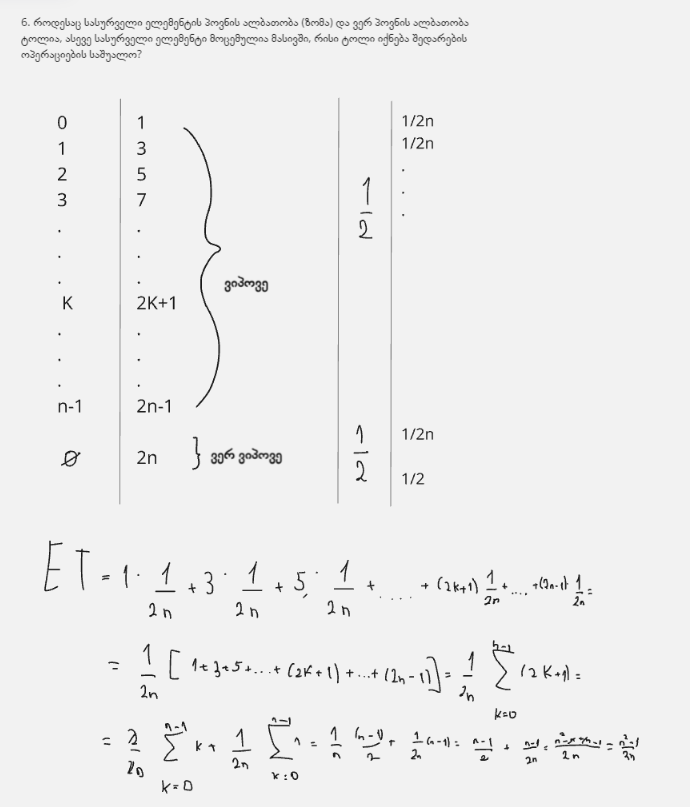 6. როდესაც სასურველი ელემენტის პოვნის ალბათობა (ზომა) და ვერ პოვნის ალბათობა
ტოლია, ასევე სასურველი ელემენტი მოცემულია მასივში, რისი ტოლი იქნება შედარების
ოპერაციების საშუალო?
0 1 1/2n
1 3 1/2n
2 5 .
3 7 1/2 .
. . .
. .
. . ვიპოვე
K 2K+1
. .
. .
. .
n-1 2n-1 1/2n
∅ 2n } ვერ ვიპოვე 1/2 1/2
ET = 1 · 1/2n + 3 · 1/2n + 5 · 1/2n + .... + (2k+1) 1/2n + .... + (2n-1) · 1/2n =
= 1/2n [ 1+3+5+...+(2K+1)+...+(2n-1)] = 1/2n ∑ n-1 k=0 (2K+1) =
∑ n-1 K=0 K + 1/2n ∑ n-1 k=0 1 = 1/n (n-1)/2 + 1/2n (n-1) = n-1/2 + n-1/2n = = n²-1/2n